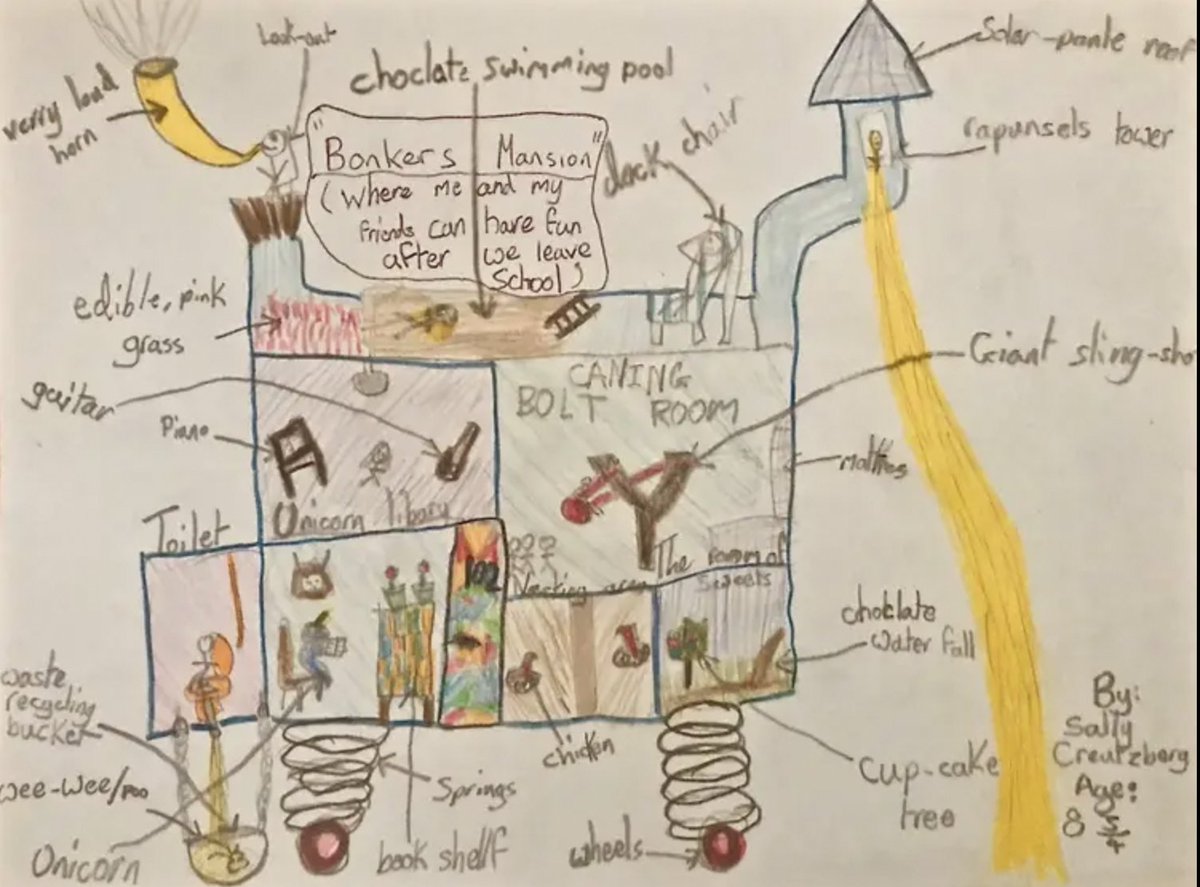 Look-out
verry loud
horn
choclate swimming pool
"Bonkers Mansion"
(where me and my
friends can have fun
after we leave
school)
deck chair
Solar-panle roof
rapunsels tower
edible, pink
grass
guitar
Piano
CANING
BOLT ROOM
Giant sling-sho
mattres
Unicorn libary
Toilet
102
Nesting area
The room of
sweets
choclate
water fall
waste
recycling
bucket
wee-wee/poo
Unicorn
Springs
book shelf
chicken
wheels
cup-cake
tree
By:
Sally
Creutzberg
Age:
8 3/4